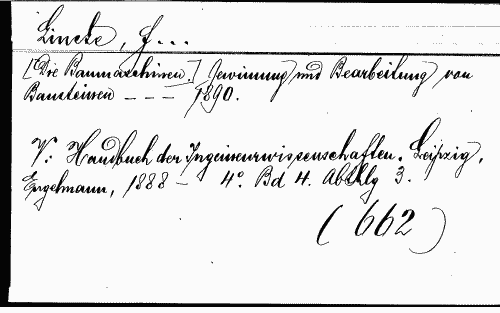 Lincke, F...
[Die Baumaschinen.] Gewinnung und Bearbeitung von
Bausteinen - - - 1890.
V.: Handbuch der Ingenieurwissenschaften. Leipzig,
Engelmann, 1888 - 4° Bd 4. Abthlg 3.
(662)